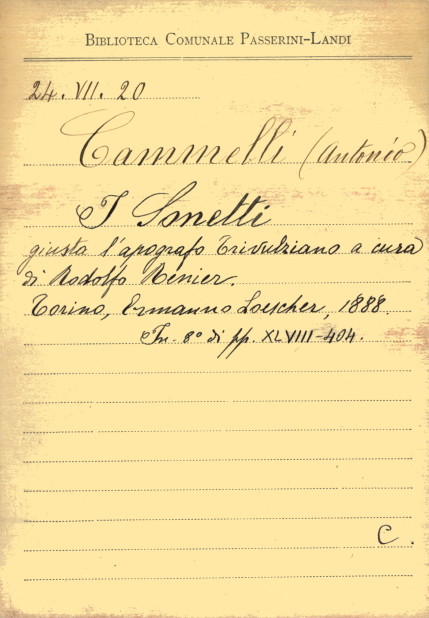 BIBLIOTECA COMUNALE PASSERINI-LANDI
24. VII. 20
Cammelli (Antonio)
I Sonetti
giusta l'apografo Trivulziano a cura
di Rodolfo Renier.
Torino, Ermanno Loescher, 1888.
In-8° di pp. XLVIII-404.
C.